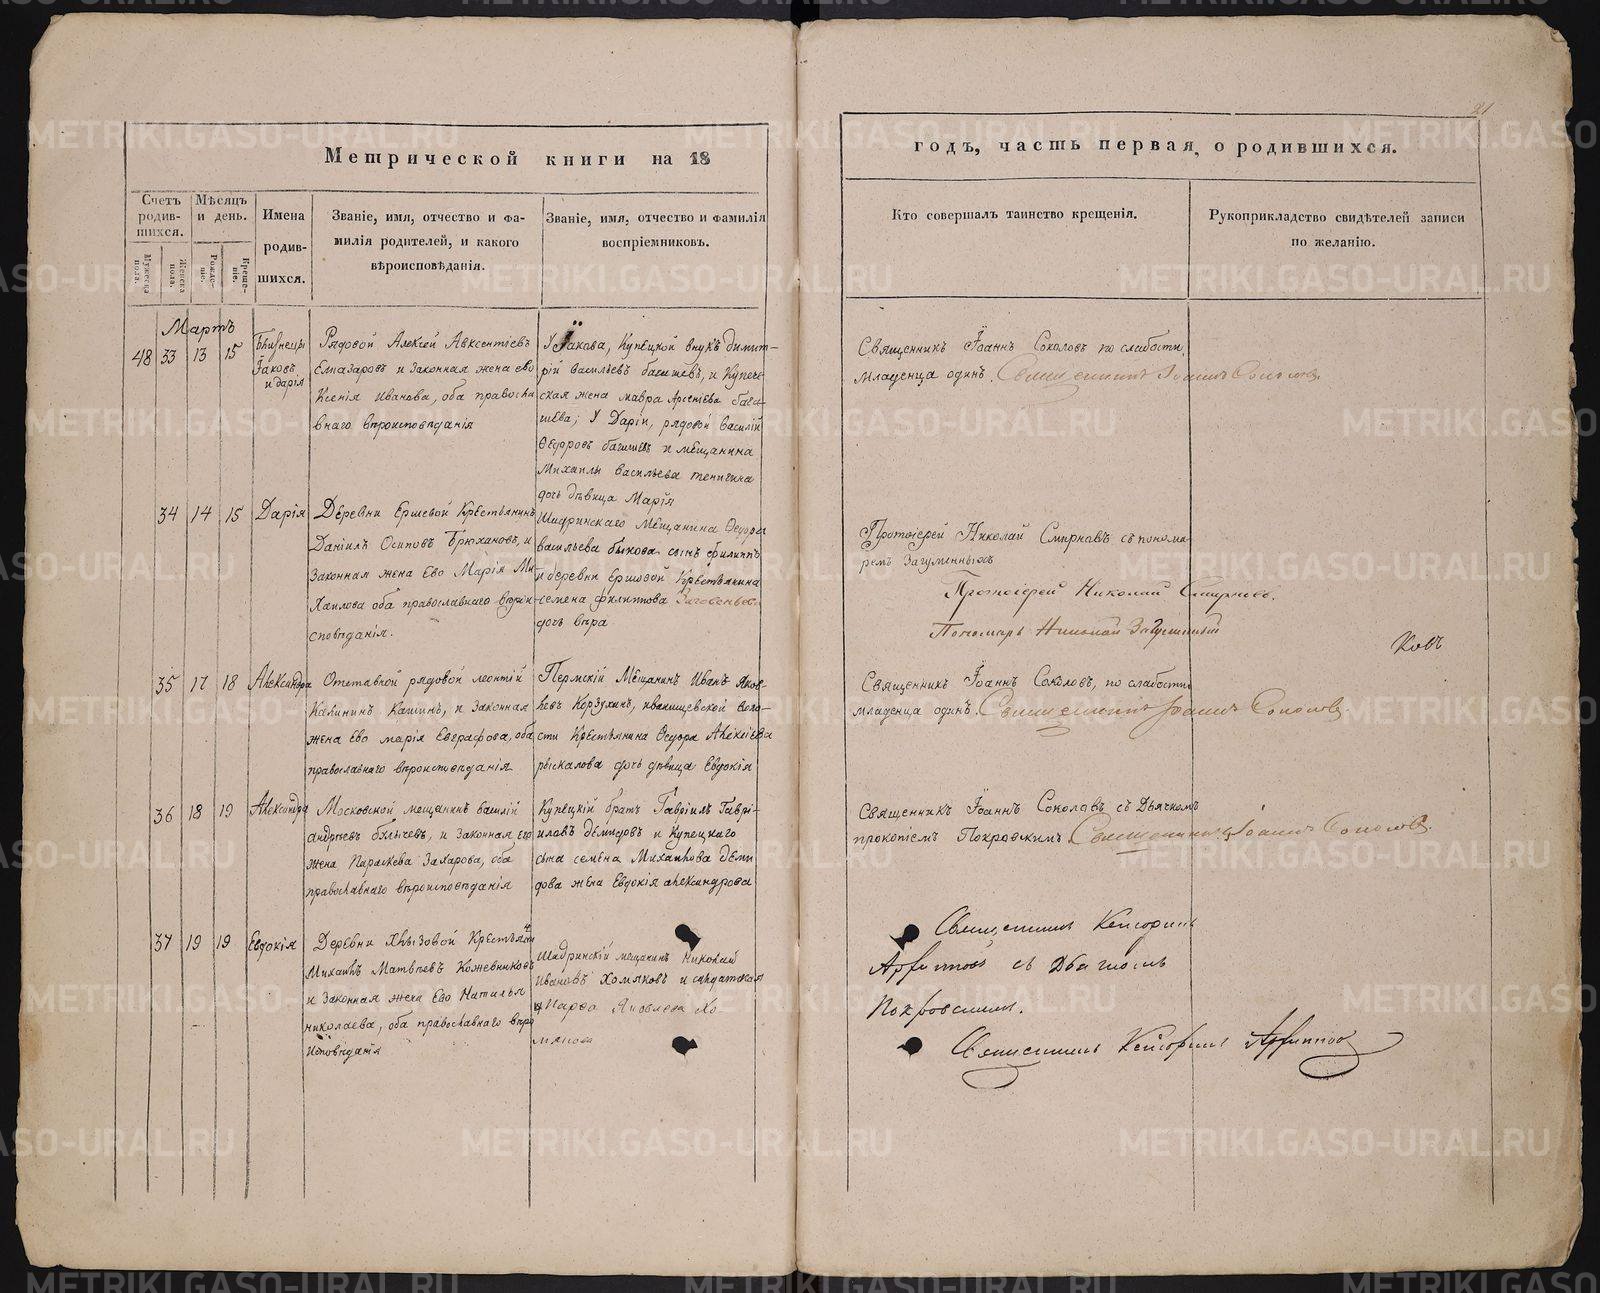 21
Метрической книги на 18
годъ, часть первая, о родившихся.
Счетъ родив-шихся.
Мѣсяцъ и день.
Имена родив-шихся.
Званіе, имя, отчество и фа-
милія родителей, и какого
вѣроисповѣданія.
Званіе, имя, отчество и фамилія
воспріемниковъ.
Кто совершалъ таинство крещенія.
Рукоприкладство свидѣтелей записи
по желанію.
Мужеска пола.
Женска пола.
Рожде-ніе.
Креще-ніе.
Мартъ
48 33 13 15
Близнецы
Іаковъ
и дарія
Рядовой Алексей Авксентіевъ
Елпазаровъ и Законная жена ево
Ксенія Иванова, оба правосла
внаго вѣроисповѣданія
У Іакова, Купецкой внукъ димит-
рій Васильевъ багашевъ, и Купече
ская жена мавра Арсеніева бага-
шева; У Даріи, рядовой Василій
Ѳедоровъ и мещанина
Михаилы Васильева
дочь дѣвица Марія
Священникъ Іоаннъ Соколовъ по слабости
младенца одинъ. Священникъ Іоаннъ Соколовъ
34 14 15
Дарія
Деревни Ершевой Крестьянинъ
Даніилъ Осиповъ Брюхановъ, и
Законная жена Ево Марія Ми
хаилова оба православнаго вѣрои-
сповѣданія.
Шадринскаго Мещанина Ѳедора
васильева быкова сынъ филиппъ
и деревни Ершовой Крестьянина
семена филиппова
дочь вѣра
Протоіерей Николай Смирновъ съ понома
ремъ Загуменныхъ
Протоіерей Николай Смирновъ.
Пономарь Николай Загуменный
ковъ
35 17 18
Александра
Отставной рядовой леонтій
Калининъ Кашинъ, и законная
жена Ево марія Евграфова, оба
православнаго вѣроисповѣданія
Пермскій Мещанинъ Иванъ Яков-
левъ Корзухинъ, иванищевской воло-
сти Крестьянина Ѳедора Алексіева
рыскалова дочь дѣвица Евдокія
Священникъ Іоаннъ Соколовъ, по слабости
младенца одинъ. Священникъ Іоаннъ Соколовъ.
36 18 19
Александра
Московской мещанинъ василій
андреевъ бычевъ, и Законная его
жена Параскева Захарова, оба
православнаго вѣроисповѣданія
Купецкій братъ Гавріилъ Гаврі-
иловъ демидовъ и Купецкаго
сына семена Михайлова деми
дова жена Евдокія александрова
Священникъ Іоаннъ Соколовъ съ Дьячкомъ
прокопіемъ Покровскимъ Священникъ Іоаннъ Соколовъ.
37 19 19
Евдокія
Деревни Хлызовой Крестьянин
Михаилъ Матвѣевъ Кожевниковъ
и Законная жена Ево Наталья
николаева, оба православнаго вѣро
исповѣданія
Шадринскій мещанинъ Николай
Ивановъ Хомяковъ и солдатская
Яковлева Хо
мякова
Священникъ
съ Дьячкомъ
Покровскимъ.
Священникъ
METRIKI.GASO-URAL.RU